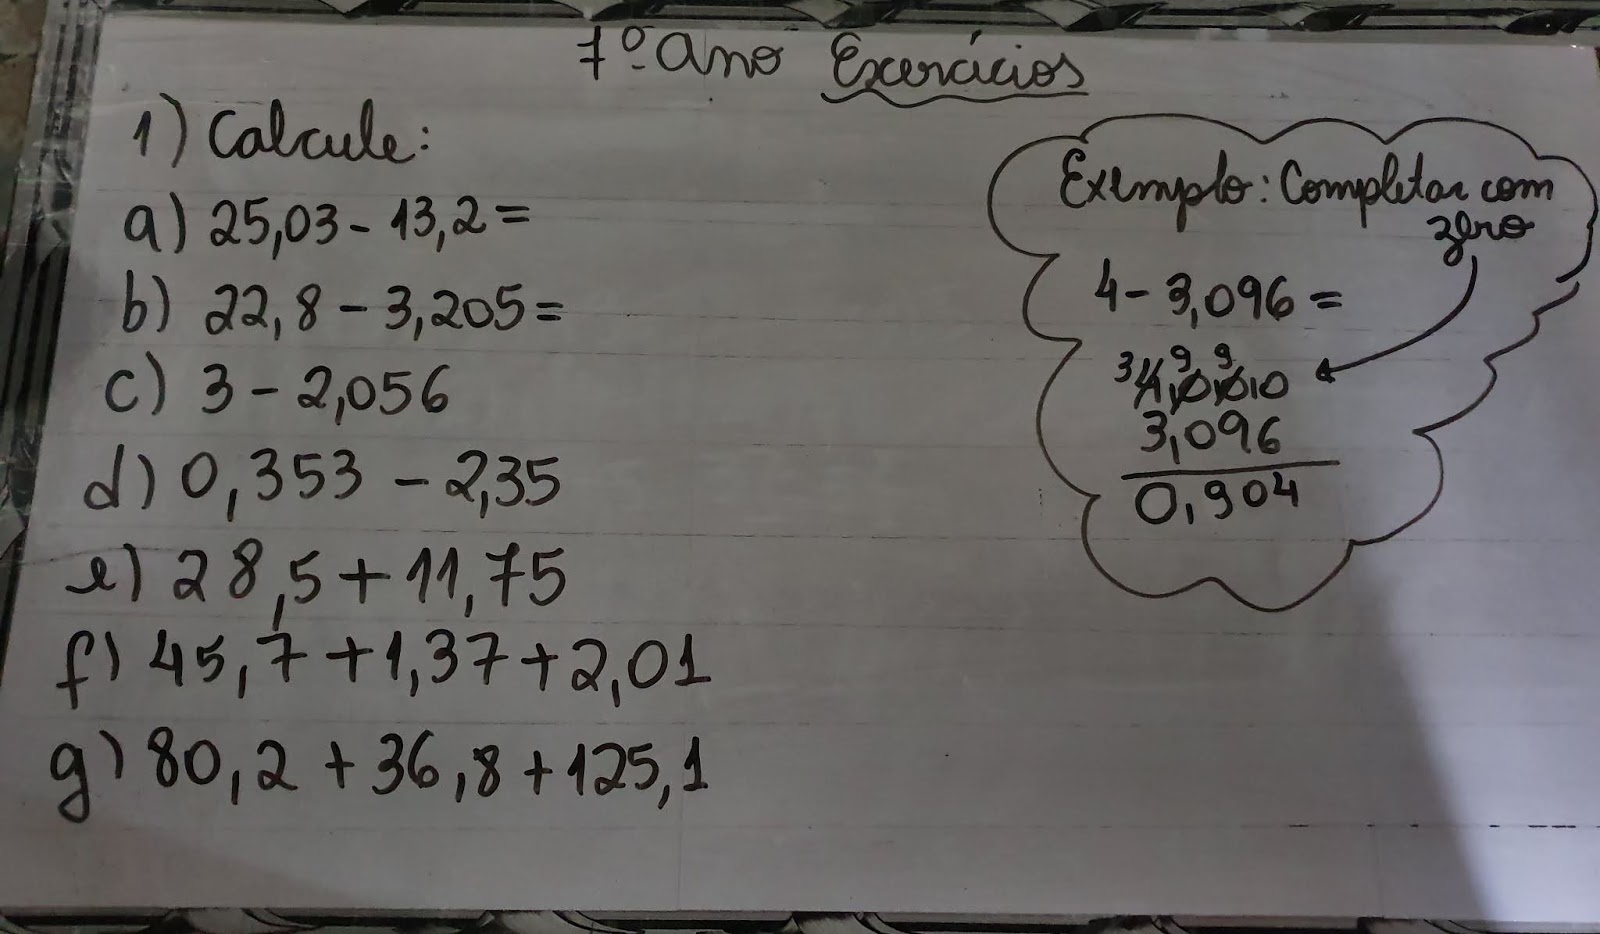 7º Ano Exercícios
1) Calcule:
a) 25,03 - 13,2 =
b) 22,8 - 3,205 =
c) 3 - 2,056
d) 0,353 - 2,35
e) 28,5 + 11,75
f) 45,7 + 1,37 + 2,01
g) 80,2 + 36,8 + 125,1
Exemplo: Completar com
zero
4 - 3,096 =
3 9 9
4,0010
3,096
0,904